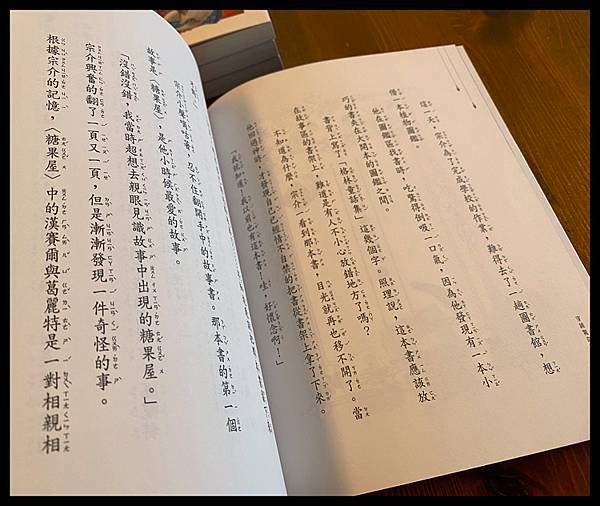 這一天，宗介為了完成學校的作業，難得去了一趟圖書館，想
借一本植物圖鑑。
他在圖鑑區找書時，吃驚得倒吸一口氣，因為他發現有一本小
巧的書夾在大開本的圖鑑之間。
書背上寫了「格林童話集」這幾個字。照理說，這本書應該放
在故事區的書架上，難道是有人不小心放錯地方了嗎？
不知道為什麼，宗介一看到那本書，目光就再也移不開了。當
他回過神時，才發現自己已經情不自禁的把書從書架上拿了下來。
「我就知道！我以前也有這本書！哇，好懷念啊！」
宗介小聲嘀咕著，忍不住翻開手中的故事書。那本書的第一個
故事是〈糖果屋〉，是他小時候最愛的故事。
「沒錯沒錯，我當時超想去親眼見識故事中出現的糖果屋。」
宗介興奮的翻了一頁又一頁，但是漸漸發現一件奇怪的事。
根據宗介的記憶，〈糖果屋〉中的漢賽爾與葛麗特是一對相親相